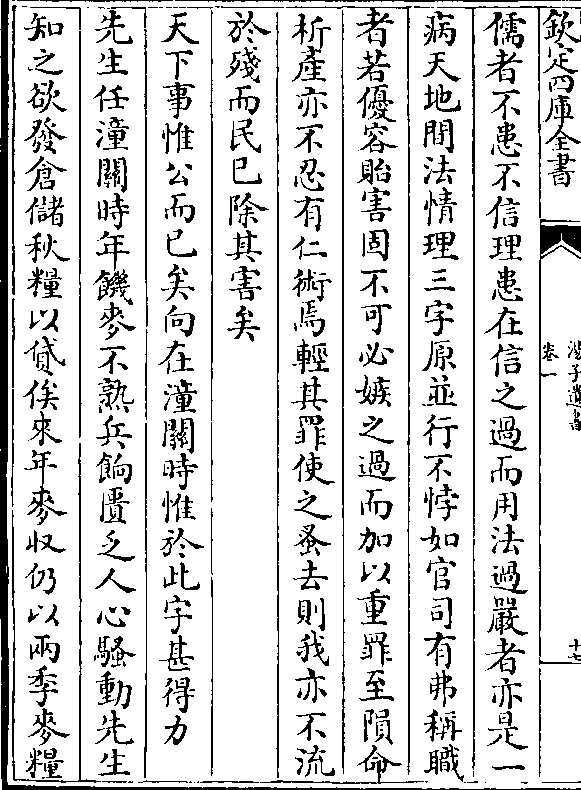 欽定四庫全書
湯子遺書
卷一
儒者不患不信理患在信之過而用法過嚴者亦是一
病天地間法情理三字原並行不悖如官司有弗稱職
者若優容貽害固不可必嫉之過而加以重罪至隕命
析產亦不忍有仁術焉輕其罪使之蚤去則我亦不流
於殘而民已除其害矣
天下事惟公而已矣向在潼關時惟於此字甚得力
先生任潼關時年饑麥不熟兵餉匱乏人心騷動先生
知之欲發倉儲秋糧以貸俟來年麥収仍以兩季麥糧